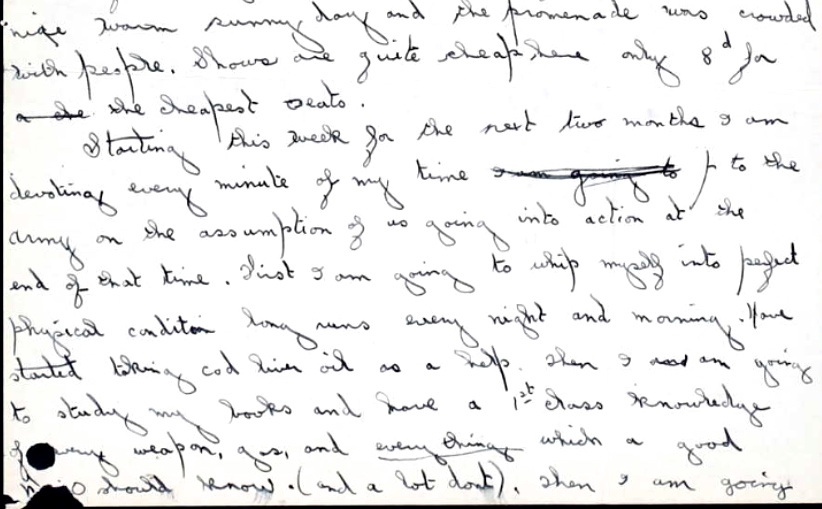 nice warm sunny day and the promenade was crowded
with people. Shows are quite cheap here only 8d for
a the the cheapest seats.
Starting this week for the next two months I am
devoting every minute of my time I am going to to the
army on the assumption of us going into action at the
end of that time. First I am going to whip myself into pefect
physical condition long runs every night and morning. Have
started taking cod liver oil as a help. Then I am going
to study my books and have a 1st class knowledge
of every weapon, gas, and every thing which a good
should know. (and a lot dont). Then I am going